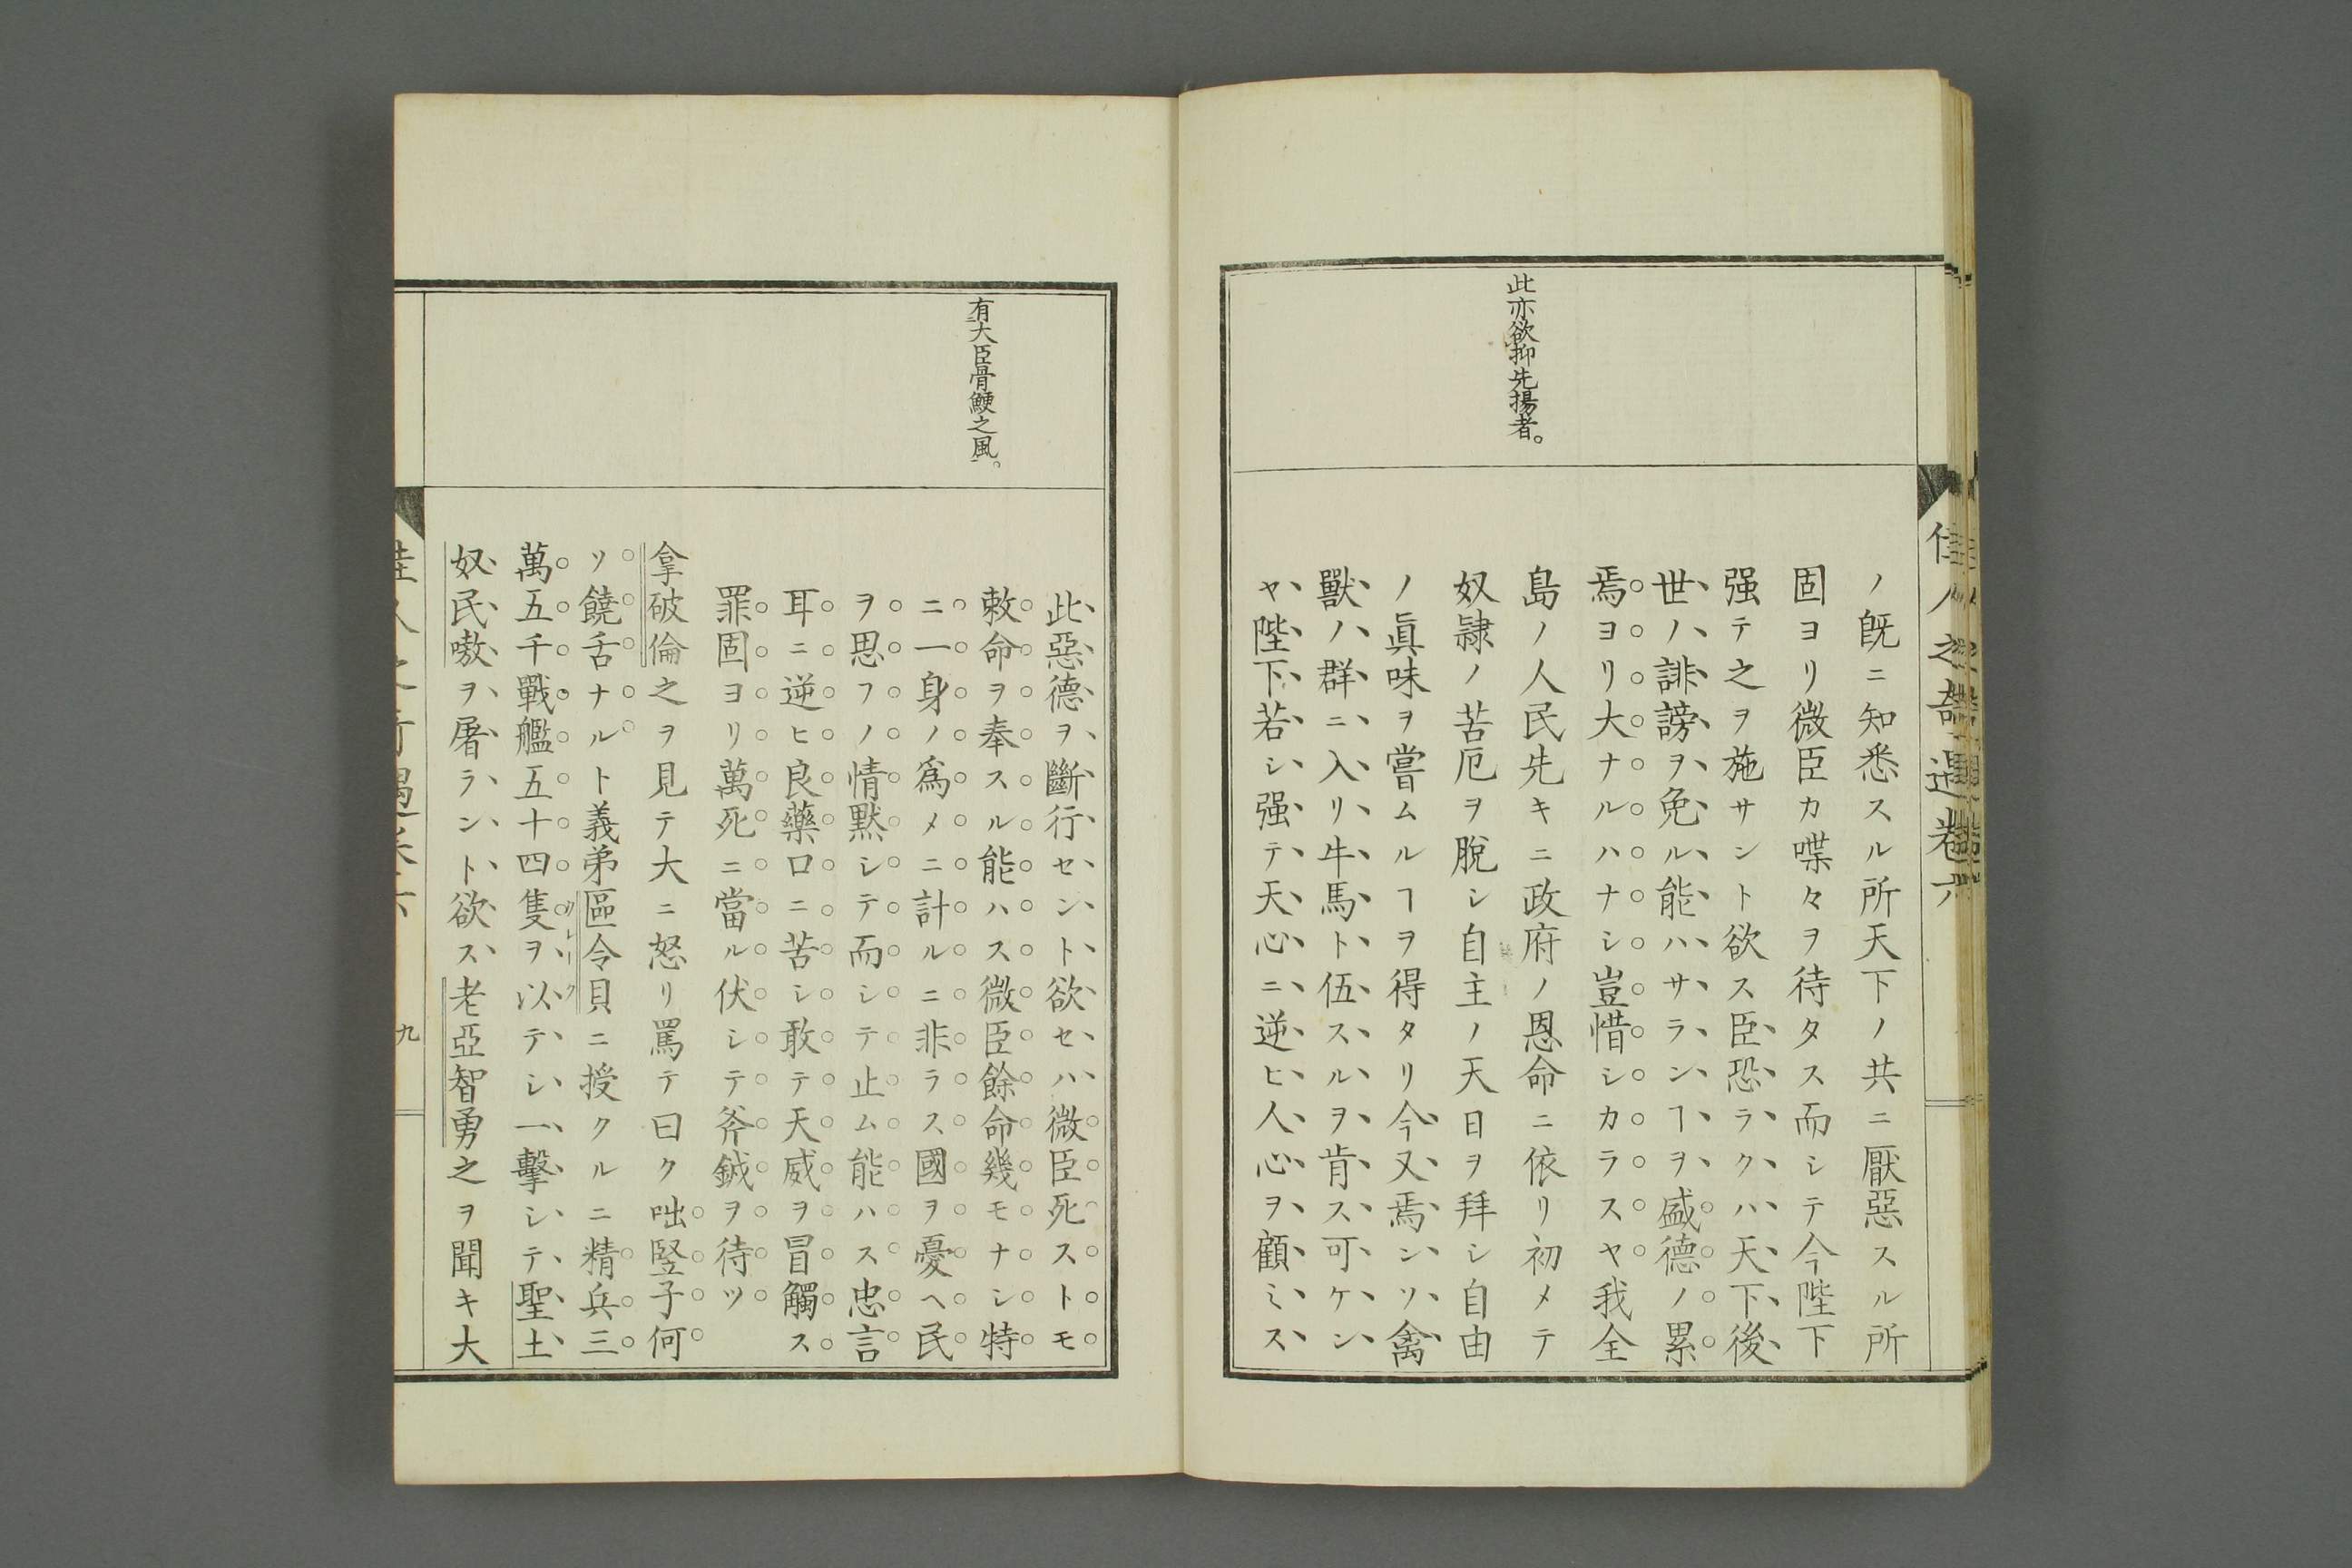 佳人之奇遇卷六
此亦欲抑先揚者。
ノ既ニ知悉スル所天下ノ共ニ厭惡スル所
固ヨリ微臣カ喋々ヲ待タス而シテ今陛下
强テ之ヲ施サント欲ス臣恐ラクハ天下後
世ノ誹謗ヲ免ル能ハサランヿヲ盛德ノ累
焉ヨリ大ナルハナシ豈惜シカラスヤ我全
島ノ人民先キニ政府ノ恩命ニ依リ初メテ
奴隷ノ苦厄ヲ脫シ自主ノ天日ヲ拜シ自由
ノ眞味ヲ嘗ムルヿヲ得タリ今又焉ンソ禽
獸ノ群ニ入リ牛馬ト伍スルヲ肯ス可ケン
ヤ陛下若シ强テ天心ニ逆ヒ人心ヲ顧ミス
有大臣骨鯁之風。
此惡德ヲ斷行セント欲セハ微臣死ストモ
敕命ヲ奉スル能ハス微臣餘命幾モナシ特
ニ一身ノ爲メニ計ルニ非ラス國ヲ憂ヘ民
ヲ思フノ情默シテ而シテ止ム能ハス忠言
耳ニ逆ヒ良藥口ニ苦シ敢テ天威ヲ冒觸ス
罪固ヨリ萬死ニ當ル伏シテ斧鉞ヲ待ツ
拿破倫之ヲ見テ大ニ怒リ罵テ曰ク咄豎子何
ソ饒舌ナルト義弟區令貝ニ授クルニ精兵三
萬五千戰艦五十四隻ヲ以テシ一擊シテ聖土
奴民嗷ヲ屠ラント欲ス老亞智勇之ヲ聞キ大
九